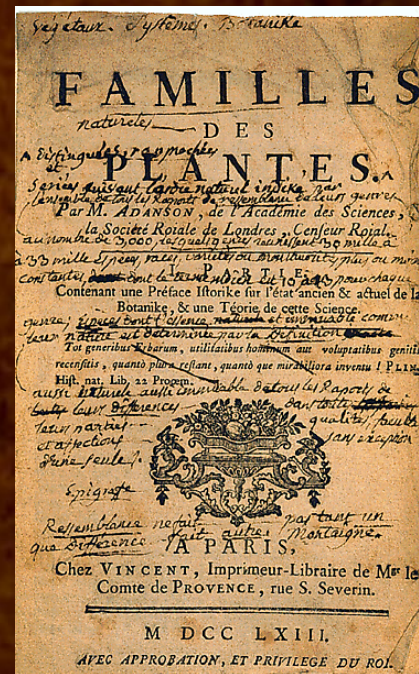 Végétaux. Systèmes. Botanike
FAMILLES
natureles
DES
PLANTES.
Distinguées, raprochées
et
Sériées suivant l'ordre naturel indiké par
l'ensemble de tous les Raports de ressemblance de leurs genres
Par M. ADANSON, de l'Académie des Sciences,
la Société Roiale de Londres, Censeur Roial.
au nombre de 3,000, lesquels genres réunissent 30 mille à
33 mille Espèces, races, variétés ou monstruosités, plus ou moins
constantes,
PARTIE
Contenant une Préface Istorike sur l'état ancien & actuel de la
Botanike, & une Téorie de cette Science.
genre; Espèces dont l'essence naturele et immuable comme
leur est déterminée par la Définition
Tot generibus Erbarum, utilitatibus hominum aut voluptatibus geniti
recensitis, quantò plura restant, quantò que mirabiliora inventu ! PLIN.
Hist. nat. Lib. 22 Proœm.
aussi naturele aussi immuable de tous les Raports de
toutes leurs Différences dans toutes
leurs parties qualités, facultés
et affections sans exception
d'une seule.
Epigrafe
Ressemblance ne fait pas tant un
que Différence fait autre. Montaigne.
A PARIS,
Chez VINCENT, Imprimeur-Libraire de Mgr le
Comte de PROVENCE, rue S. Severin.
M DCC LXIII.
AVEC APPROBATION, ET PRIVILEGE DU ROI.